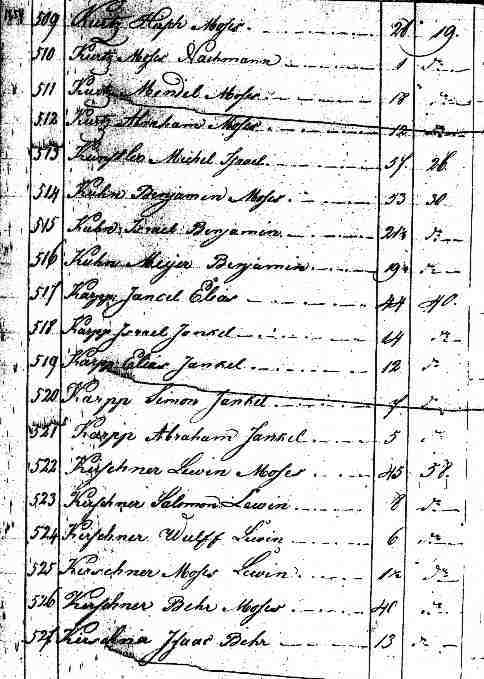 509 Kurtz Hirsch Moses 28 19
510 Kurtz Moses Nachmann 1 do
511 Kurtz Mendel Moses 18 do
512 Kurtz Abraham Moses 12 do
513 Künstler Michel Israel 57 28
514 Kuhn Benjamin Moses 53 30
515 Kuhn Israel Benjamin 21½ do
516 Kuhn Meyer Benjamin 19½ do
517 Karpp Jancel Elias 44 40
518 Karpp Israel Jankel 14 do
519 Karpp Elias Jankel 12 do
520 Karpp Simon Jankel 7 do
521 Karpp Abraham Jankel 5 do
522 Kirschner Lewin Moses 45 58
523 Kirschner Salomon Lewin 8 do
524 Kirschner Wulff Lewin 6 do
525 Kirschner Moses Lewin do
526 Kirschner Behr Moses 40 do
527 Kirschner Isaac Behr 13 do